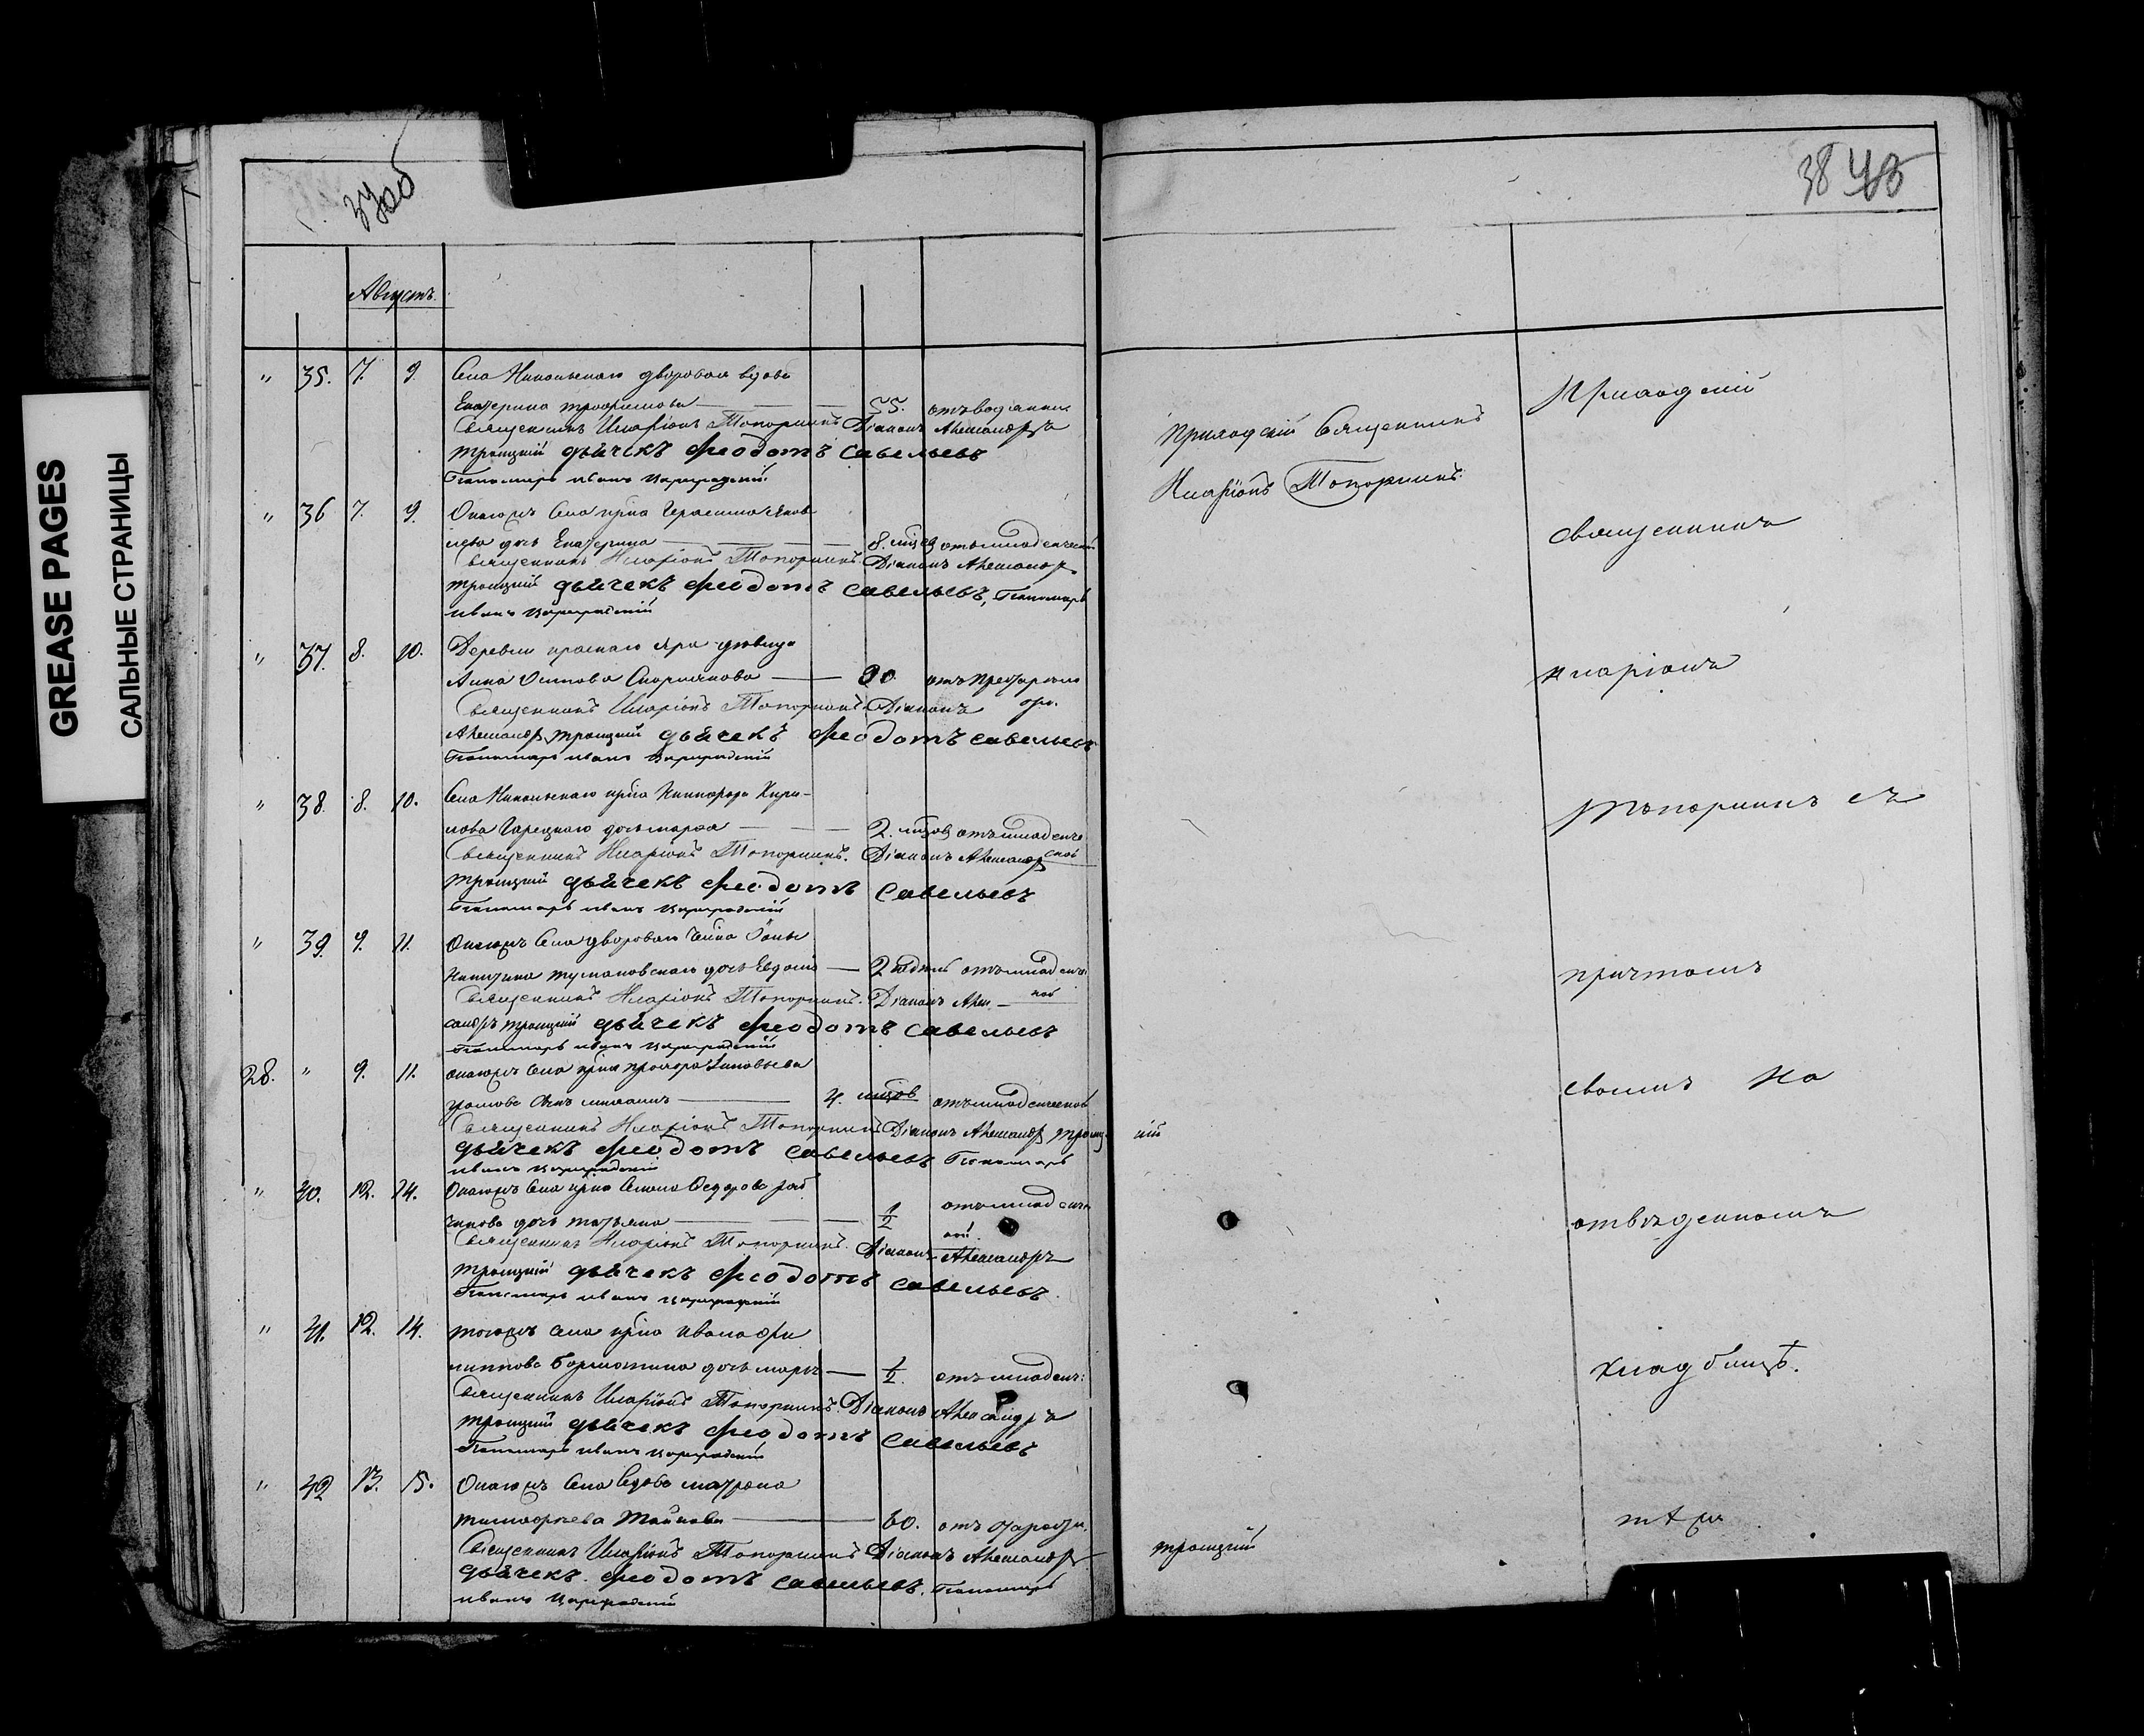 GREASE PAGES
САЛЬНЫЕ СТРАНИЦЫ
37об
38
Августъ.
" 35. 7. 9. Села Никольскаго дворовая вдова
Екатерина Трофимова 55. отъ водянки
Священникъ Иларіонъ Топорнинъ Діаконъ Александръ
Троицкій дьячекъ Феодотъ Савельевъ
Пономарь Иванъ Цареградскій.
" 36 7. 9. Онагожъ Села крна Герасима Яков
лева дочь Екатерина 8. мцов отъ младенческой
Священникъ Иларіонъ Топорнинъ. Діаконъ Александръ
Троицкій дьячекъ Феодотъ Савельевъ, Пономарь
Иванъ Цареградскій
" 37. 8. 10. Деревни Краснаго Яра дѣвица
Анна Осипова 90 отъ престарѣло
Священникъ Иларіонъ Топорнинъ Діаконъ
Александръ Троицкій дьячекъ Феодотъ Савельевъ
Пономарь Иванъ Цареградскій
" 38. 8. 10. Села Никольскаго крна Никифора Кири-
лова дочь Марфа 2. мцов отъ младенче
ской
Священникъ Иларіонъ Топорнинъ. Діаконъ Александръ
Троицкій дьячекъ Феодотъ Савельевъ
Пономарь Иванъ Цареградскій
" 39. 9. 11. Онагожъ Села двороваго члка
Никитина Тумановскаго дочь Евдокія 2 отъ младенче
ной
Священникъ Иларіонъ Топорнинъ. Діаконъ Алек-
сандръ Троицкій дьячекъ Феодотъ Савельевъ
Пономарь Иванъ Цареградскій
28. " 9. 11. Онагожъ Села крна Прохора Зиновьева
Громова сынъ 4. мцов отъ младенческой
Священникъ Иларіонъ Топорнинъ Діаконъ Александръ Троиц кій
дьячекъ Феодотъ Савельевъ Пономарь
Иванъ Цареградскій
" 40. 12. 14. Онагожъ Села крна Семена Федорова Ряб
чикова дочь Татьяна 1/2 отъ младенче
ной.
Священникъ Иларіонъ Топорнинъ. Діаконъ Александръ
Троицкій дьячекъ Феодотъ Савельевъ.
Пономарь Иванъ Цареградскій
" 41. 12. 14. Тогожъ Села крна Ивана Фи
липпова дочь Марья 1/2. отъ младенч:
Священникъ Иларіонъ Топорнинъ. Діаконъ Александръ
Троицкій дьячекъ Феодотъ Савельевъ
Пономарь Иванъ Цареградскій
" 42 13. 15. Онагожъ Села вдова Матрона
Тимофеева 60. отъ старости.
Священникъ Иларіонъ Топорнинъ Діаконъ Александръ Троицкій
дьячекъ Феодотъ Савельевъ. Пономарь
Иванъ Цареградскій
Приходскій Священникъ
Иларіонъ Топорнинъ.
Приходскій
священникъ
Иларіонъ
Топорнинъ съ
причтомъ
своимъ на
отведенномъ
кладбищѣ.